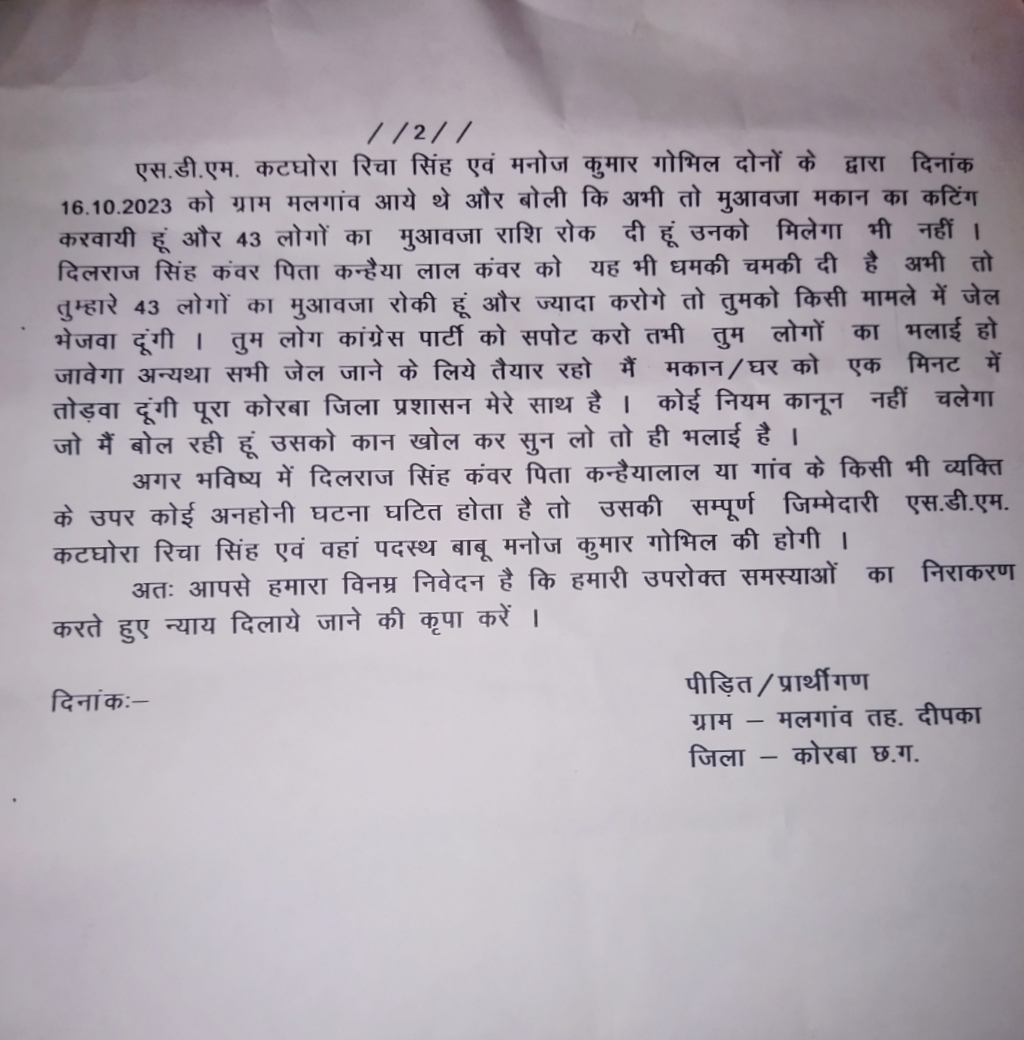 //2//
एस.डी.एम. कटघोरा रिचा सिंह एवं मनोज कुमार गोभिल दोनों के द्वारा दिनांक
16.10.2023 को ग्राम मलगांव आये थे और बोली कि अभी तो मुआवजा मकान का कटिंग
करवायी हूं और 43 लोगों का मुआवजा राशि रोक दी हूं उनको मिलेगा भी नहीं ।
दिलराज सिंह कंवर पिता कन्हैया लाल कंवर को यह भी धमकी चमकी दी है अभी तो
तुम्हारे 43 लोगों का मुआवजा रोकी हूं और ज्यादा करोगे तो तुमको किसी मामले में जेल
भेजवा दूंगी । तुम लोग कांग्रेस पार्टी को सपोट करो तभी तुम लोगों का भलाई हो
जावेगा अन्यथा सभी जेल जाने के लिये तैयार रहो मैं मकान/घर को एक मिनट में
तोड़वा दूंगी पूरा कोरबा जिला प्रशासन मेरे साथ है । कोई नियम कानून नहीं चलेगा
जो मैं बोल रही हूं उसको कान खोल कर सुन लो तो ही भलाई है ।
अगर भविष्य में दिलराज सिंह कंवर पिता कन्हैयालाल या गांव के किसी भी व्यक्ति
के उपर कोई अनहोनी घटना घटित होता है तो उसकी सम्पूर्ण जिम्मेदारी एस.डी.एम.
कटघोरा रिचा सिंह एवं वहां पदस्थ बाबू मनोज कुमार गोभिल की होगी ।
अतः आपसे हमारा विनम्र निवेदन है कि हमारी उपरोक्त समस्याओं का निराकरण
करते हुए न्याय दिलाये जाने की कृपा करें ।
दिनांकः–
पीड़ित/प्रार्थीगण
ग्राम – मलगांव तह. दीपका
जिला – कोरबा छ.ग.